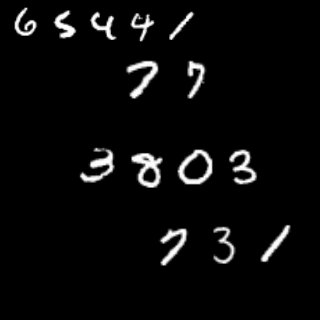 65441
77
3803
731